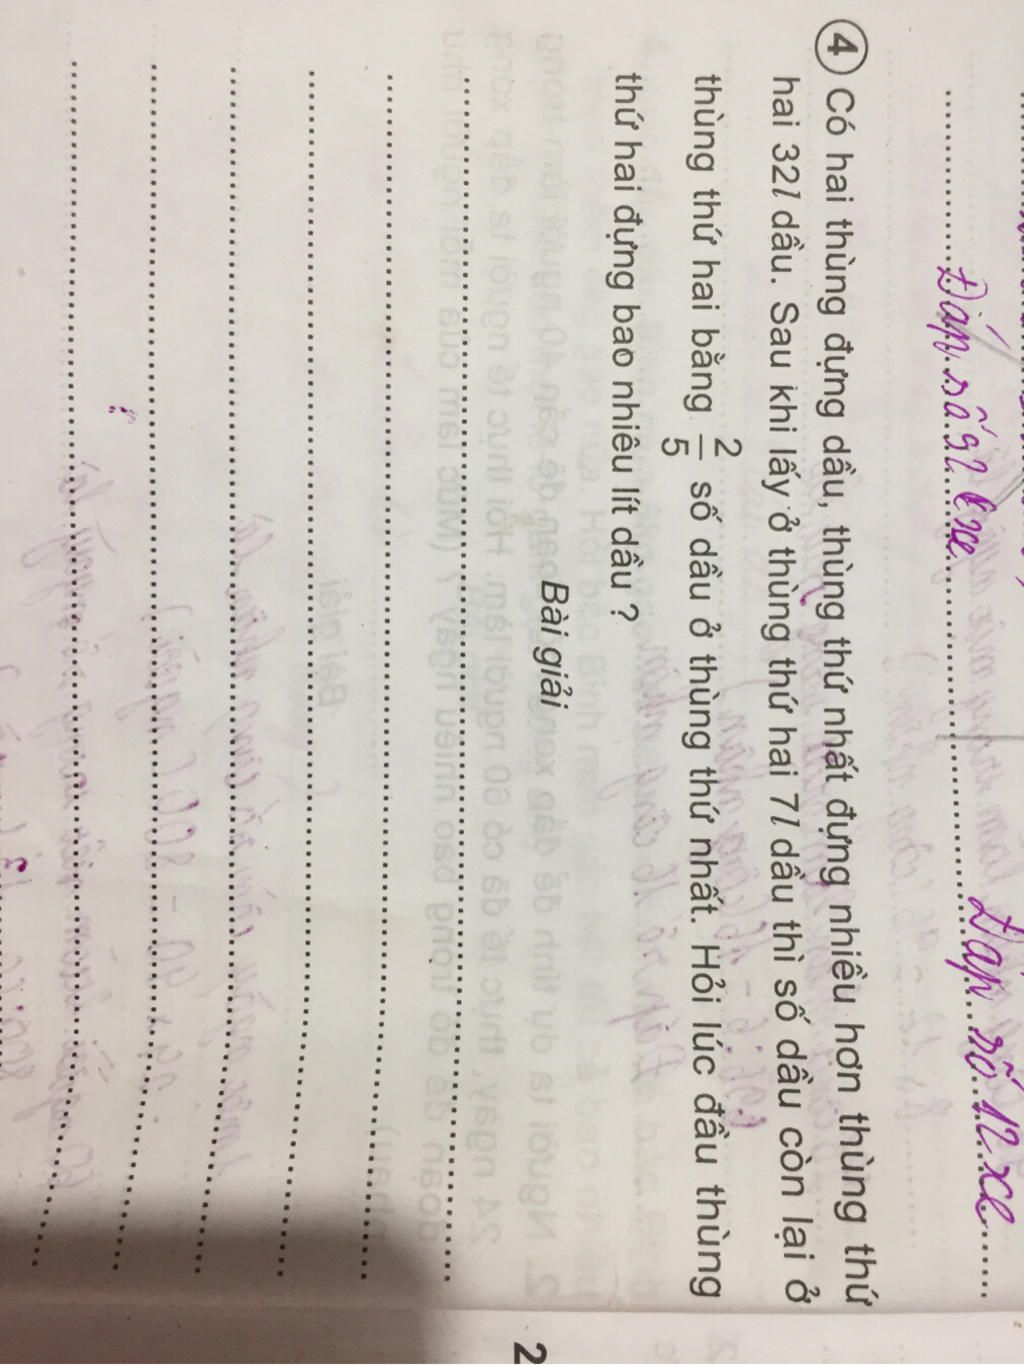 Đáp số 92 xe
Đáp số 12 xe
4 Có hai thùng đựng dầu, thùng thứ nhất đựng nhiều hơn thùng thứ
hai 32l dầu. Sau khi lấy ở thùng thứ hai 7l dầu thì số dầu còn lại ở
thùng thứ hai bằng 2/5 số dầu ở thùng thứ nhất. Hỏi lúc đầu thùng
thứ hai đựng bao nhiêu lít dầu ?
Bài giải
2